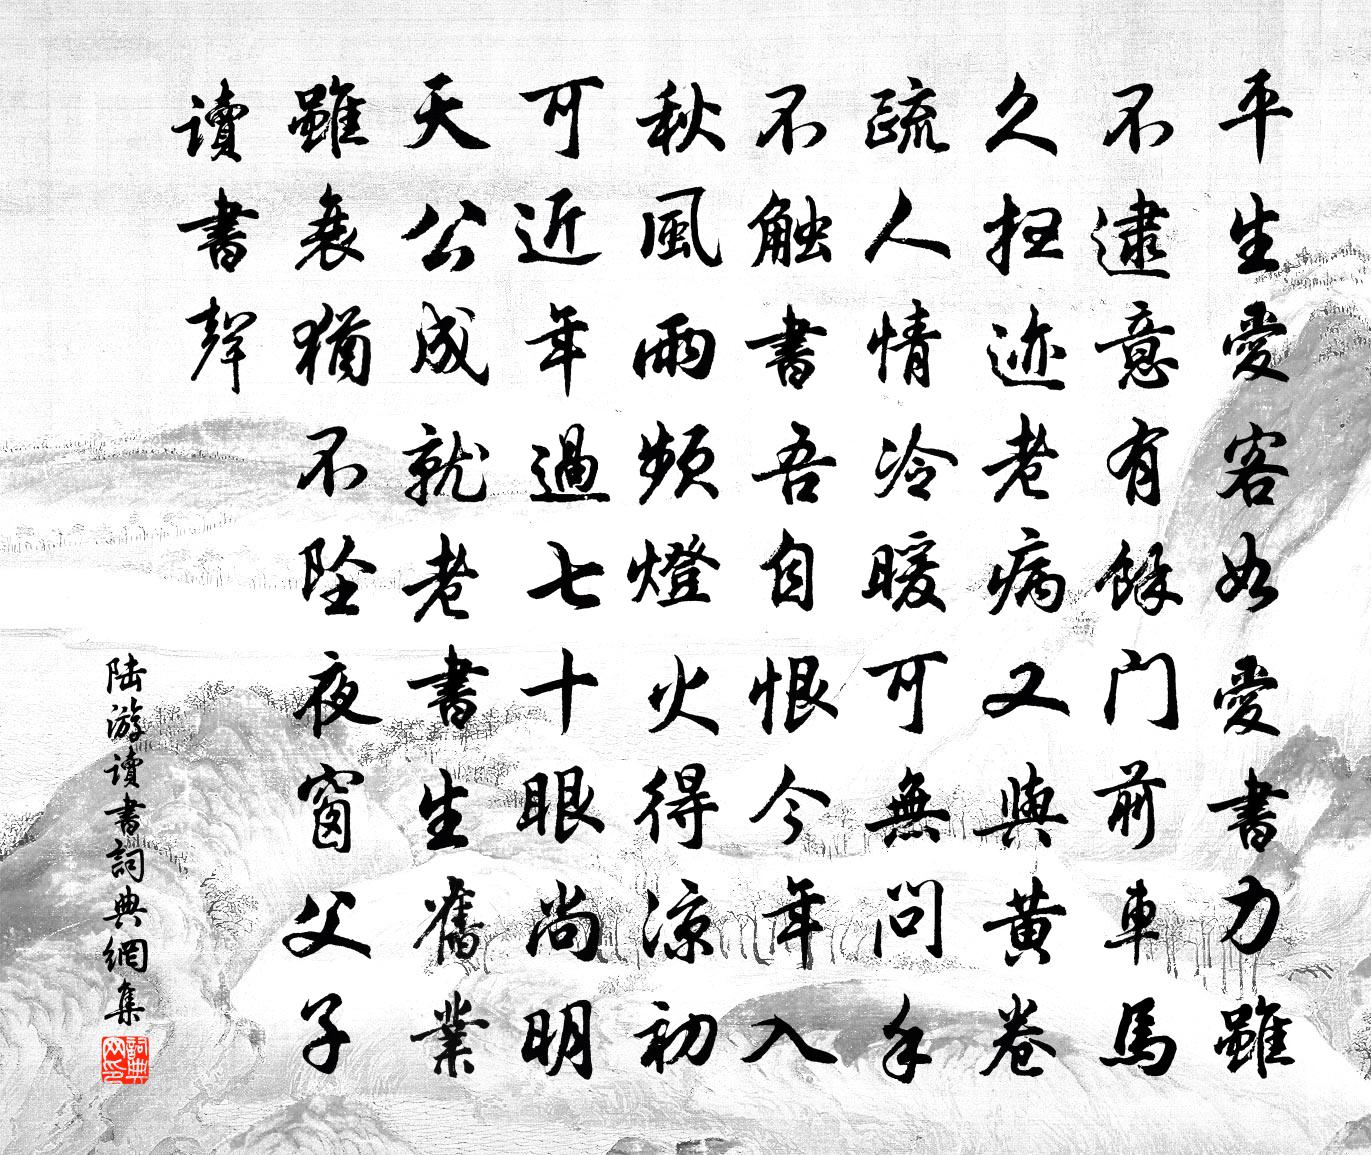 平生愛客如愛書力雖
不逮意有餘門前車馬
久掃迹老病又與黃卷
疏人情冷暖可無問手
不触書吾自恨今年入
秋風雨頻燈火得涼初
可近年過七十眼尚明
天公成就老書生舊業
雖衰猶不墜夜窗父子
讀書聲
陆游讀書詞典網集
詞典
网印